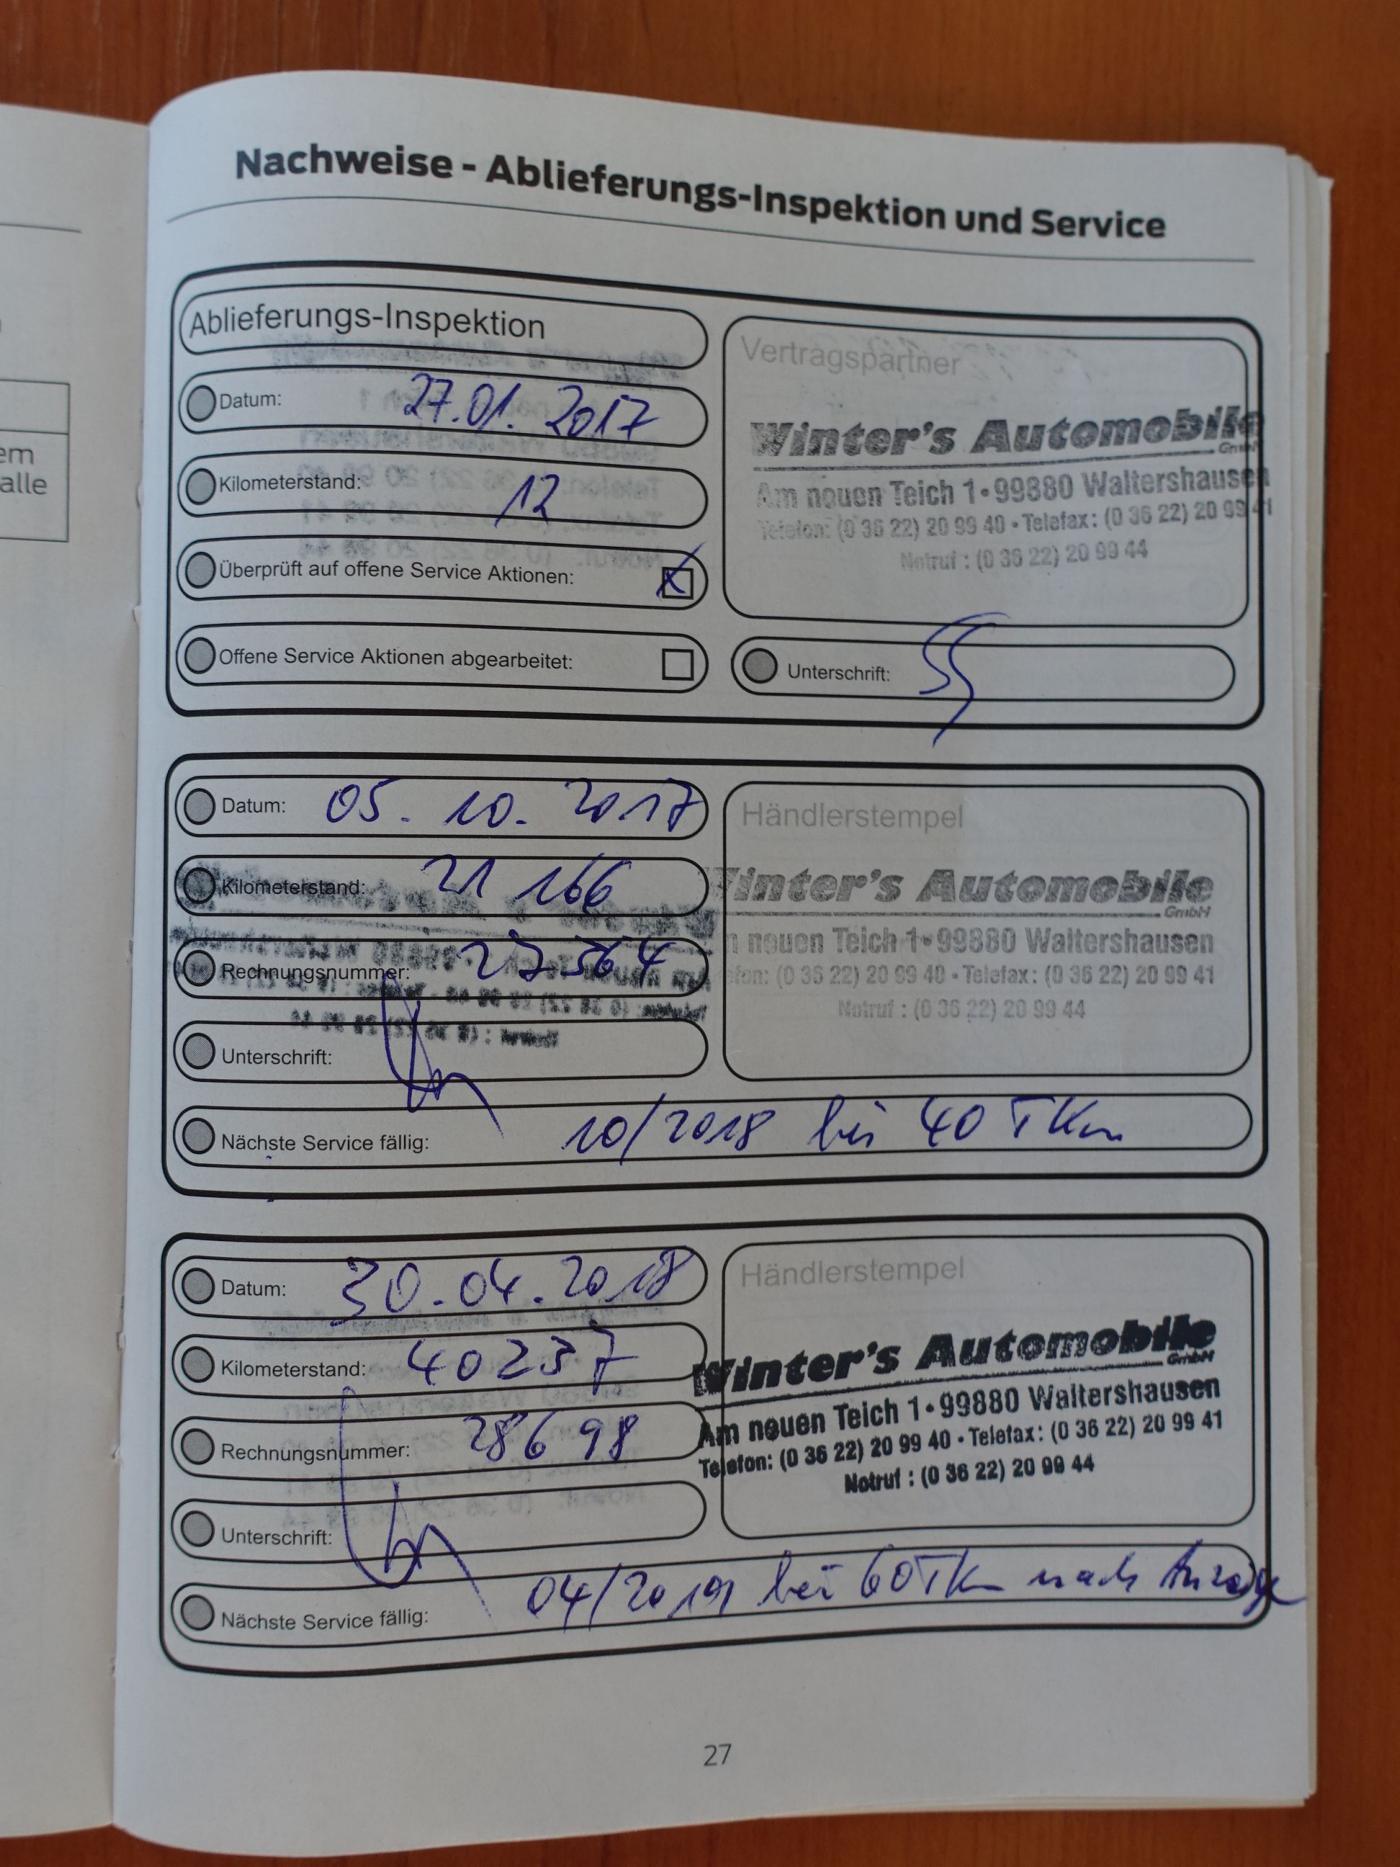 em
alle
Nachweise - Ablieferungs-Inspektion und Service
Ablieferungs-Inspektion
Datum: 27.01.2017
Kilometerstand: 12
Überprüft auf offene Service Aktionen: X
Offene Service Aktionen abgearbeitet:
Vertragspartner
Winter's Automobile
GmbH
Am neuen Teich 1 • 99880 Waltershausen
Telefon: (0 36 22) 20 99 40 • Telefax: (0 36 22) 20 99 41
Notruf : (0 36 22) 20 99 44
Unterschrift:
Datum: 05.10.2017
Kilometerstand: 21 166
Rechnungsnummer: 27564
Unterschrift:
Händlerstempel
Winter's Automobile
GmbH
n neuen Teich 1 • 99880 Waltershausen
fon: (0 36 22) 20 99 40 • Telefax: (0 36 22) 20 99 41
Notruf : (0 36 22) 20 99 44
Nächste Service fällig: 10/2018 bei 40 TKm
Datum: 30.04.2018
Kilometerstand: 40237
Rechnungsnummer: 28698
Unterschrift:
Händlerstempel
Winter's Automobile
GmbH
Am neuen Teich 1 • 99880 Waltershausen
Telefon: (0 36 22) 20 99 40 • Telefax: (0 36 22) 20 99 41
Notruf : (0 36 22) 20 99 44
Nächste Service fällig: 04/2019 bei 60TKm nach Anzeige
27